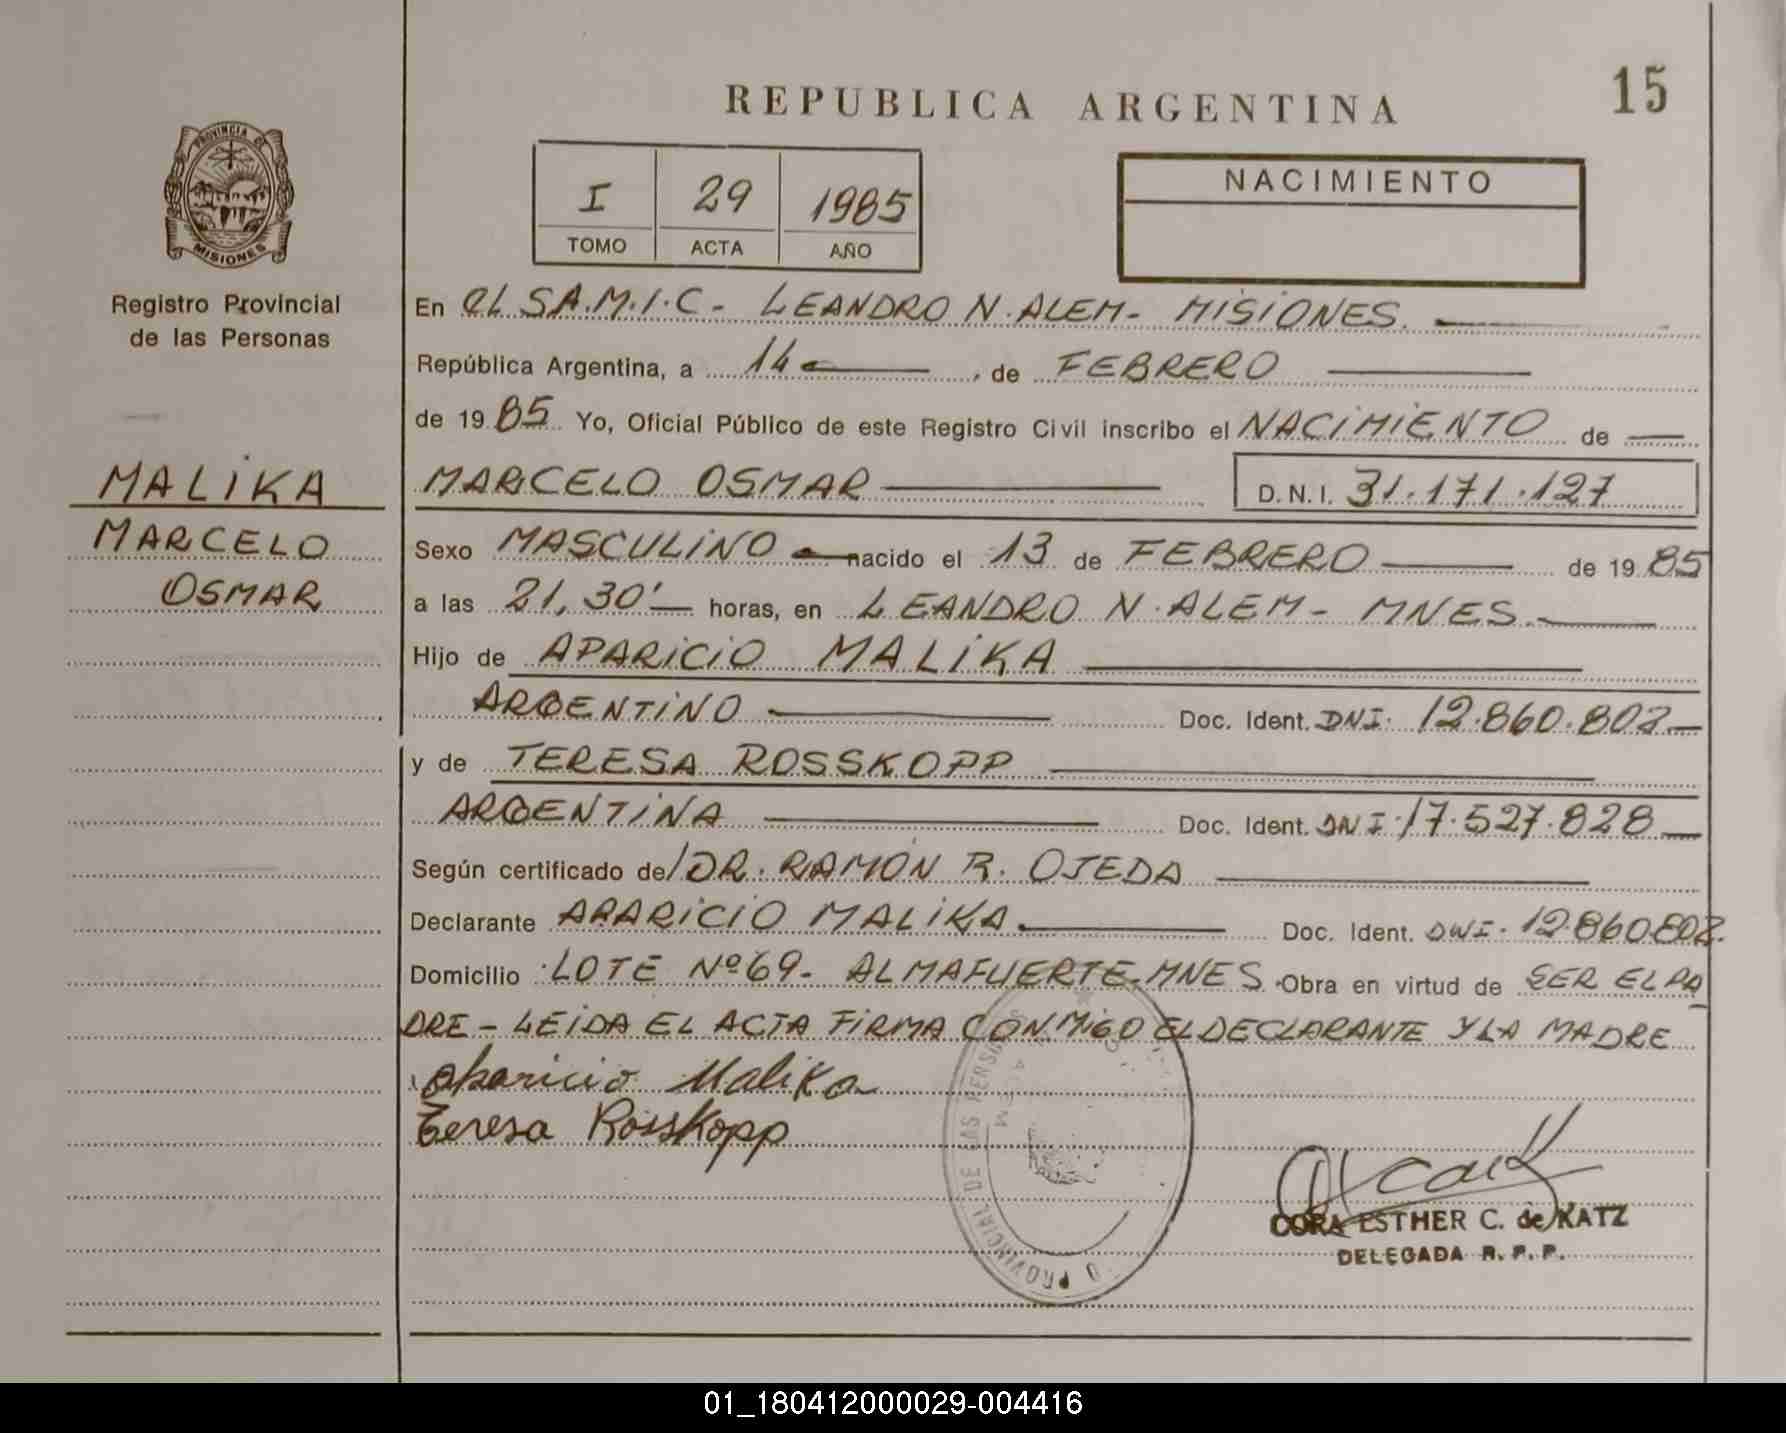 REPUBLICA ARGENTINA
15
PROVINCIA DE
MISIONES
Registro Provincial
de las Personas
I 29 1985
TOMO ACTA AÑO
NACIMIENTO
En EL S.A.M.I.C - LEANDRO N. ALEM - MISIONES.
República Argentina, a 14 , de FEBRERO
de 19 85 Yo, Oficial Público de este Registro Civil inscribo el NACIMIENTO de
MALIKA
MARCELO
OSMAR
MARCELO OSMAR D.N.I. 31.171.127
Sexo MASCULINO nacido el 13 de FEBRERO de 19 85
a las 21,30' horas, en LEANDRO N. ALEM - MNES.
Hijo de APARICIO MALIKA
ARGENTINO Doc. Ident. DNI. 12.860.802
y de TERESA ROSSKOPP
ARGENTINA Doc. Ident. DNI. 17.527.828
Según certificado de/ DR. RAMÓN R. OJEDA
Declarante APARICIO MALIKA. Doc. Ident. DNI. 12.860.802.
Domicilio LOTE Nº 69 - ALMAFUERTE - MNES. Obra en virtud de SER EL PA
DRE - LEIDA EL ACTA FIRMA CONMIGO EL DECLARANTE Y LA MADRE
Aparicio Malika
Teresa Rosskopp
O PROVINCIAL DE LAS PERSO
CORA ESTHER C. de KATZ
DELEGADA R. P. P.
01_180412000029-004416